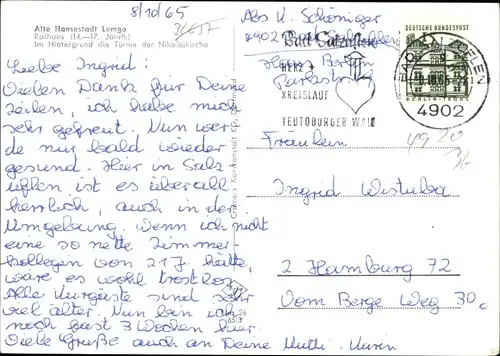 8/10/65
Alte Hansestadt Lemgo
Rathaus (14.—17. Jahrh.)
Im Hintergrund die Türme der Nikolaikirche
Liebe Ingrid!
Vielen Dank für Deine
Zeilen, ich habe mich
sehr gefreut. Nun wer
de nur bald wieder
gesund. Hier in Salz
uflen ist es überall
herrlich, auch in der
Umgebung. Wenn ich nicht
eine so nette Zimmer
kollegin von 21 J. hätte,
wäre es wohl trostlos.
Alle Kurgäste sind sehr
viel älter. Nun bin ich
noch fast 3 Wochen hier.
Viele Grüße auch an Deine Mutti.
Cramers Kunstanstalt KG, Dortmund
Abs K. Schöniger
4902 Bad Salzuflen
Haus Berlin
Parkstr.
Bad Salzuflen
HERZ
KREISLAUF
TEUTOBURGER WALD
DEUTSCHE BUNDESPOST
BERLIN-TEGEL
BAD SALZUFLEN
4902
Fräulein
Ingrid
2 Hamburg 72
Vom Berge Weg 30c